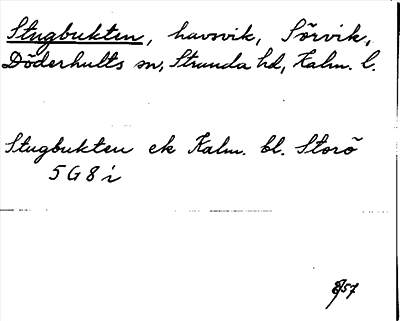 Stugbukten, havsvik, Sörvik,
Döderhults sn, Stranda hd, Kalm. l.
Stugbukten ek Kalm. bl. Storö
5 G 8 i